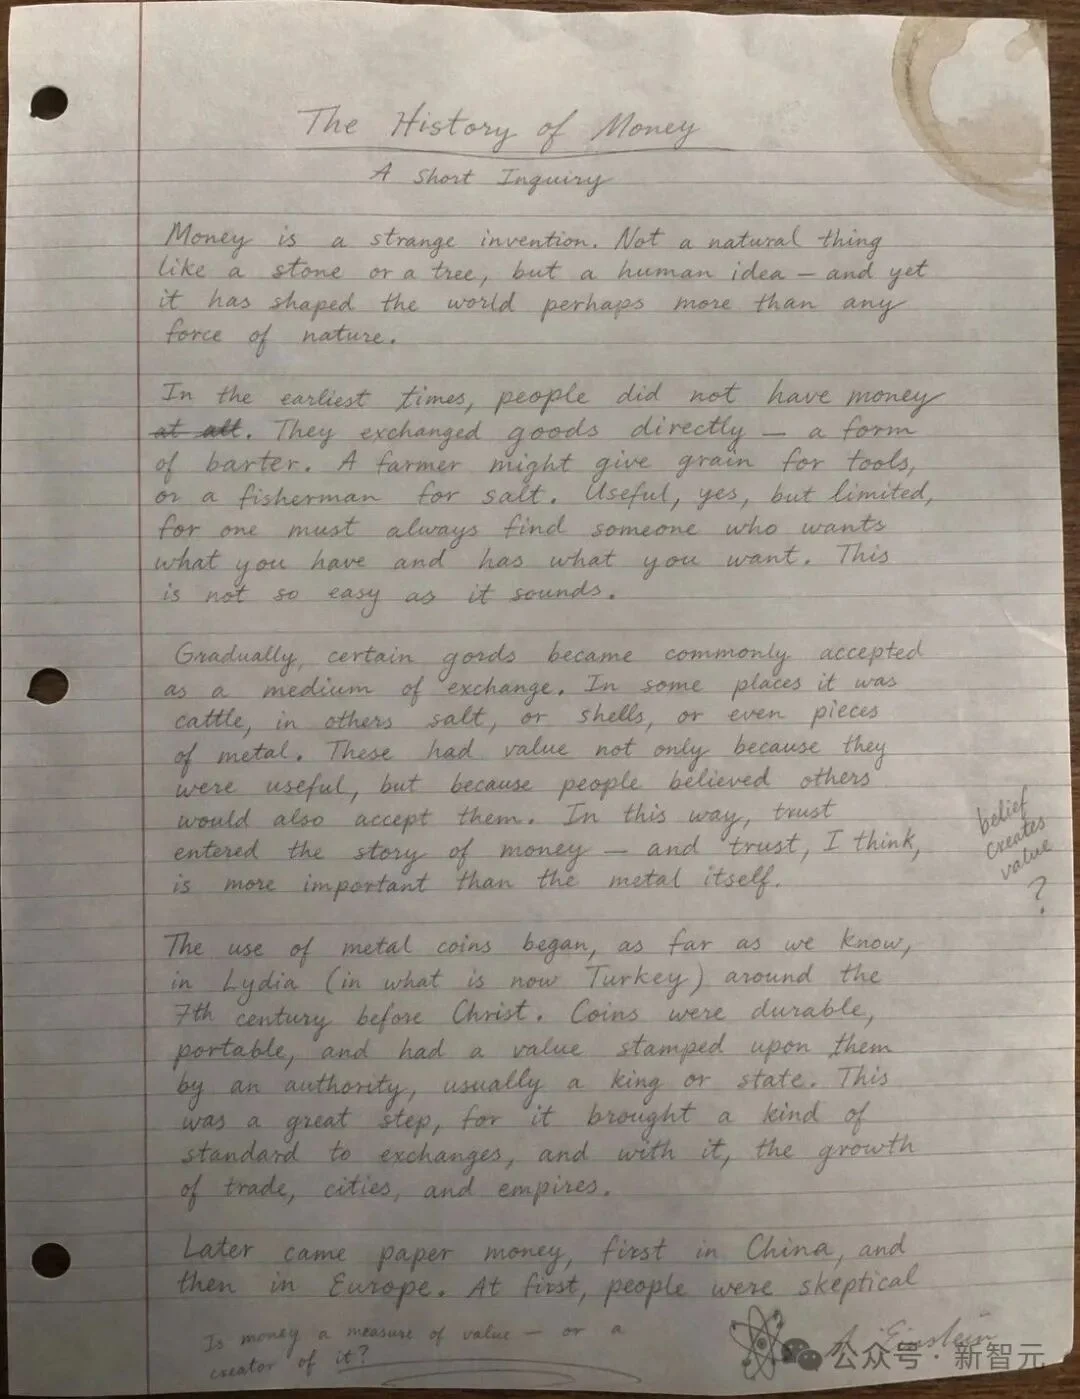 The History of Money
A Short Inquiry
Money is a strange invention. Not a natural thing
like a stone or a tree, but a human idea — and yet
it has shaped the world perhaps more than any
force of nature.
In the earliest times, people did not have money
at all. They exchanged goods directly — a form
of barter. A farmer might give grain for tools,
or a fisherman for salt. Useful, yes, but limited,
for one must always find someone who wants
what you have and has what you want. This
is not so easy as it sounds.
Gradually, certain goods became commonly accepted
as a medium of exchange. In some places it was
cattle, in others salt, or shells, or even pieces
of metal. These had value not only because they
were useful, but because people believed others
would also accept them. In this way, trust
entered the story of money — and trust, I think,
is more important than the metal itself.
belief
creates
value
?
The use of metal coins began, as far as we know,
in Lydia (in what is now Turkey) around the
7th century before Christ. Coins were durable,
portable, and had a value stamped upon them
by an authority, usually a king or state. This
was a great step, for it brought a kind of
standard to exchanges, and with it, the growth
of trade, cities, and empires.
Later came paper money, first in China, and
then in Europe. At first, people were skeptical
Is money a measure of value — or a
creator of it?
A. Einstein
公众号·新智元